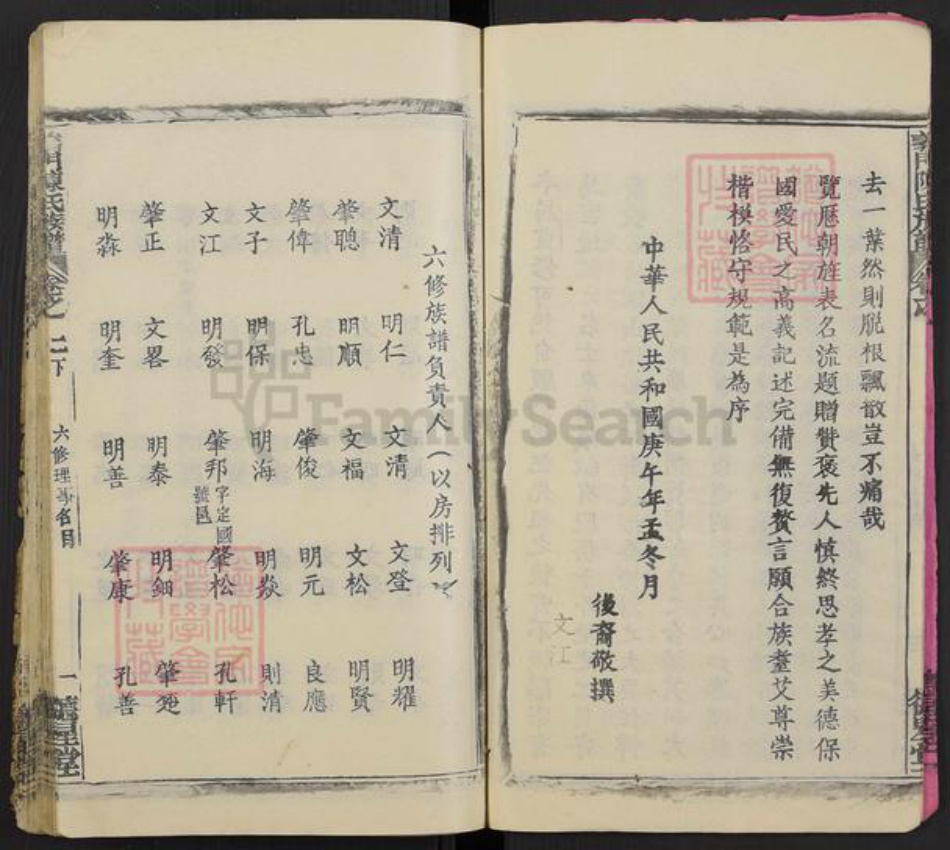 去一葉然則脱根飄散豈不痛哉
覽歷朝旌表名流題贈贊褒先人慎終思孝之美德保
國愛民之高義記述完備無復贅言願合族耋艾尊崇
楷模恪守規範是為序
中華人民共和國庚午年孟冬月
後裔敬撰
文江
六修族譜負責人(以房排列)
文清 明仁 文清 文登 明耀
肇聰 明順 文福 文松 明賢
肇偉 孔忠 肇俊 明元 良應
文子 明保 明海 明焱 則清
文江 明發 肇邦字定國號邑 肇松 孔軒
肇正 文畧 明泰 明鈿 肇㐮
明淼 明奎 明善 肇康 孔善
義門陳氏族譜 卷之二下 六修理事名目 一 德星堂
FamilySearch